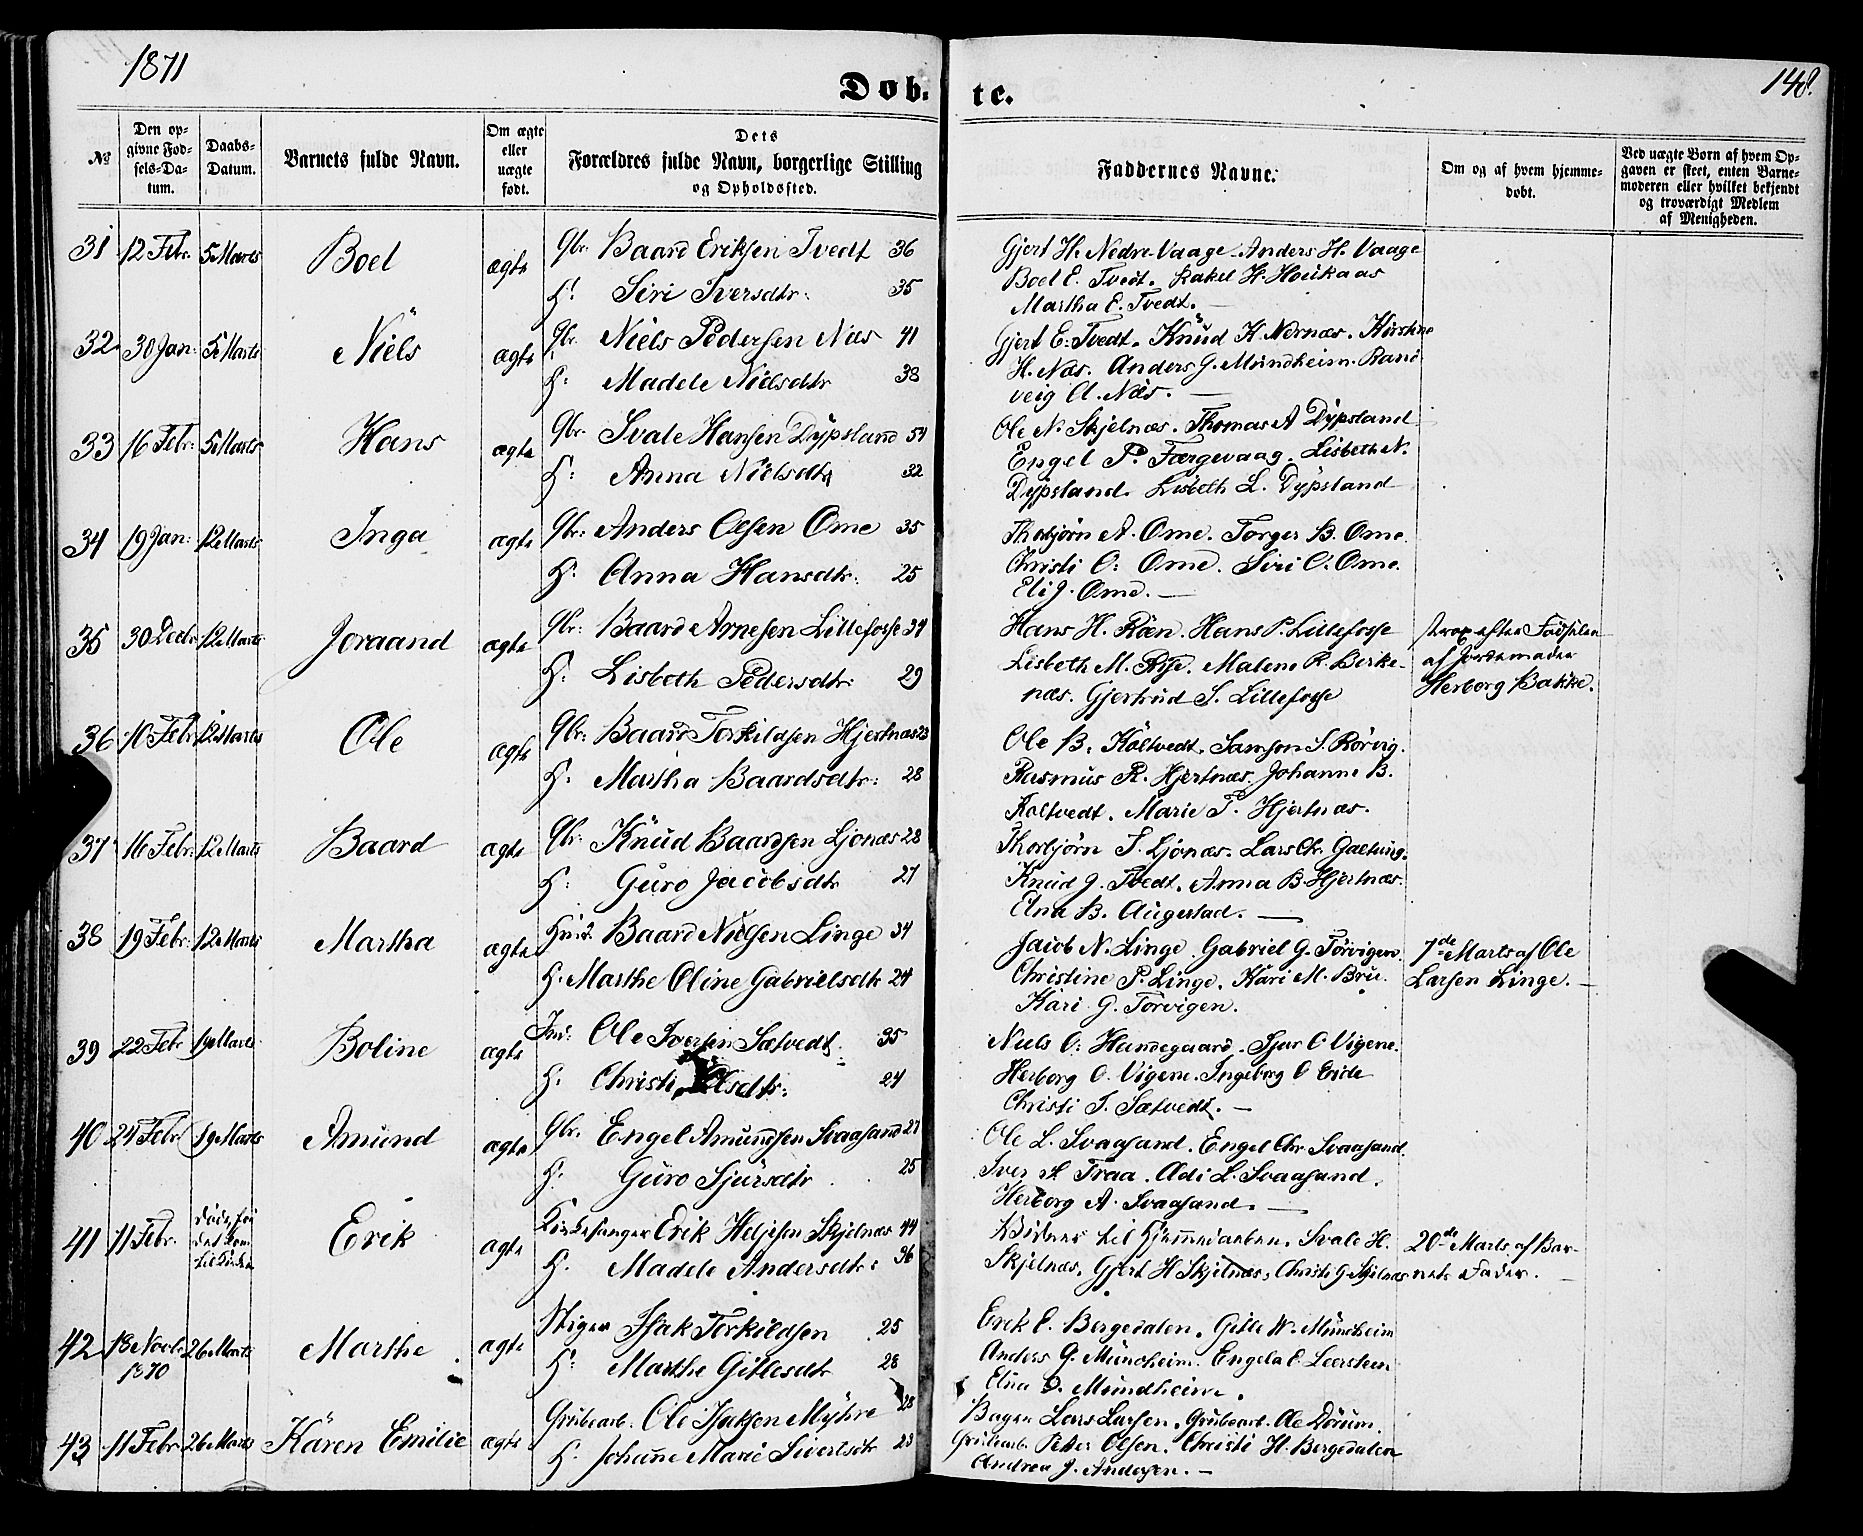 1871
148.
Døb. te.
No
Den opgivne Fødsels-Datum.
Daabs-Datum.
Barnets fulde Navn.
Om ægte eller uægte født.
Dets Forældres fulde Navn, borgerlige Stilling og Opholdssted.
Faddernes Navne.
Om og af hvem hjemmedøbt.
Ved uægte Børn af hvem Opgaven er skeet, enten Barnemoderen eller hvilket bekjendt og troværdigt Medlem af Menigheden.
31 12 Febr. 5 Marts Boel ægte Gbr. Baard Eriksen Tvedt 36
H: Siri Iversdtr: 35
Gjert H. Nedre-Vaage. Anders H. Vaage
Boel E. Tvedt. Rakel H. Hovkaas
Martha E. Tvedt. —
32 30 Jan: 5 Marts Niels ægte Gbr. Niels Pedersen Næs 41
H: Madele Nielsdtr 38
Gjert E. Tvedt. Knud K. Nernæs. Kirstine
H. Næs. Anders G. Mundheim. Rand
veig A. Næs. —
33 16 Febr: 5 Marts Hans ægte Gbr. Svale Hansen Dypsland 54
H: Anna Nielsdtr 32
Ole N. Skjelnæs. Thomas A Dypsland
Engel P. Færgevaag. Lisbeth N.
Dypsland. Lisbeth L. Dypsland
34 19 Jan: 12 Marts Inga ægte Gbr: Anders Olsen Ome 35
H: Anna Hansdtr: 25
Thorbjørn A. Ome. Torger B. Ome.
Christi O: Ome. Siri O. Ome.
Eli J. Ome. —
35 30 Decbr 12 Marts Joraand ægte Gbr: Baard Arnesen Lillefosse 34
H: Lisbeth Pedersdtr: 29
Hans H. Røen. Hans P. Lillefosse
Lisbeth M. Rise. Malene R. Birke-
næs. Gjertrud S. Lillefosse
strax efter Fødselen
af Jordemoder
Herborg Bakke.
36 10 Febr 12 Marts Ole ægte Gbr: Baard Torkildsen Hjertnæs 23
H: Martha Baardsdtr: 28
Ole B. Koltvedt. Samson S. Rørvig.
Rasmus R. Hjertnæs. Johanne B.
Koltvedt. Marie T. Hjertnæs.
37 16 Febr: 12 Marts Baard ægte Gbr. Knud Baardsen Ljonæs 28
H: Guro Jacobsdtr 27
Thorbjørn S. Ljønæs. Lars Chr. Gjetving.
Knud J. Tvedt. Anna B. Hjertnæs.
Elna B. Augestad. —
38 19 Febr: 12 Marts Martha ægte Baard Nielsen Linge 34
H: Marthe Oline Gabrielsdtr 24
Jacob N. Linge. Gabriel G. Tørvigen.
Christine P. Linge. Kari M. Bru.
Kari G. Tørvigen.
7de Marts af Ole
Larsen Linge. —
39 22 Febr 19 Marts Boline ægte Ole Iversen Sætvedt. 35
H: Christi Olsdtr: 24
Niels O: Handegaard. Sjur O Vigene.
Herborg O. Vigene. Ingeborg O Eide
Christi I. Sætvedt. —
40 24 Febr 19 Marts Amund ægte Gbr. Engel Amundsen Svaasand 27
H: Guro Sjursdtr 25
Ole L. Svaasand. Engel Chr Svaasand.
Iver A. Traa. Adi L. Svaasand.
Herborg A. Svaasand. —
41 11 Febr. døde før det kom til Kirken Erik ægte Kirkesanger Erik Heljesen Skjelnæs 44
H. Madele Andersdtr: 36
Vidner til Hjemmedaaben. Svale H.
Skjelnæs. Gjert H Skjelnæs. Christi G. Skjelnæs
20de Marts af Bar-
nets Fader. —
42 18 Novbr 1870 26 Marts Marthe ægte Stiger Isak Torkildsen 25
H: Marthe Gitlesdtr 28
Erik E. Bergedalen. Gitle W. Mundheim
Anders G. Mundheim. Engela E.
Elna D. Mundheim.
43 11 Febr 26 Marts Karen Emilie ægte Grubearb. Ole Isaksen Myhre 28
H. Johanne Marie Sivertsdtr 23
Bager Lars Larsen. Grubearb. Ole Dørum.
Grubearb. Peder Olsen. Christi H. Bergedalen
Andrea J. Andersen. —